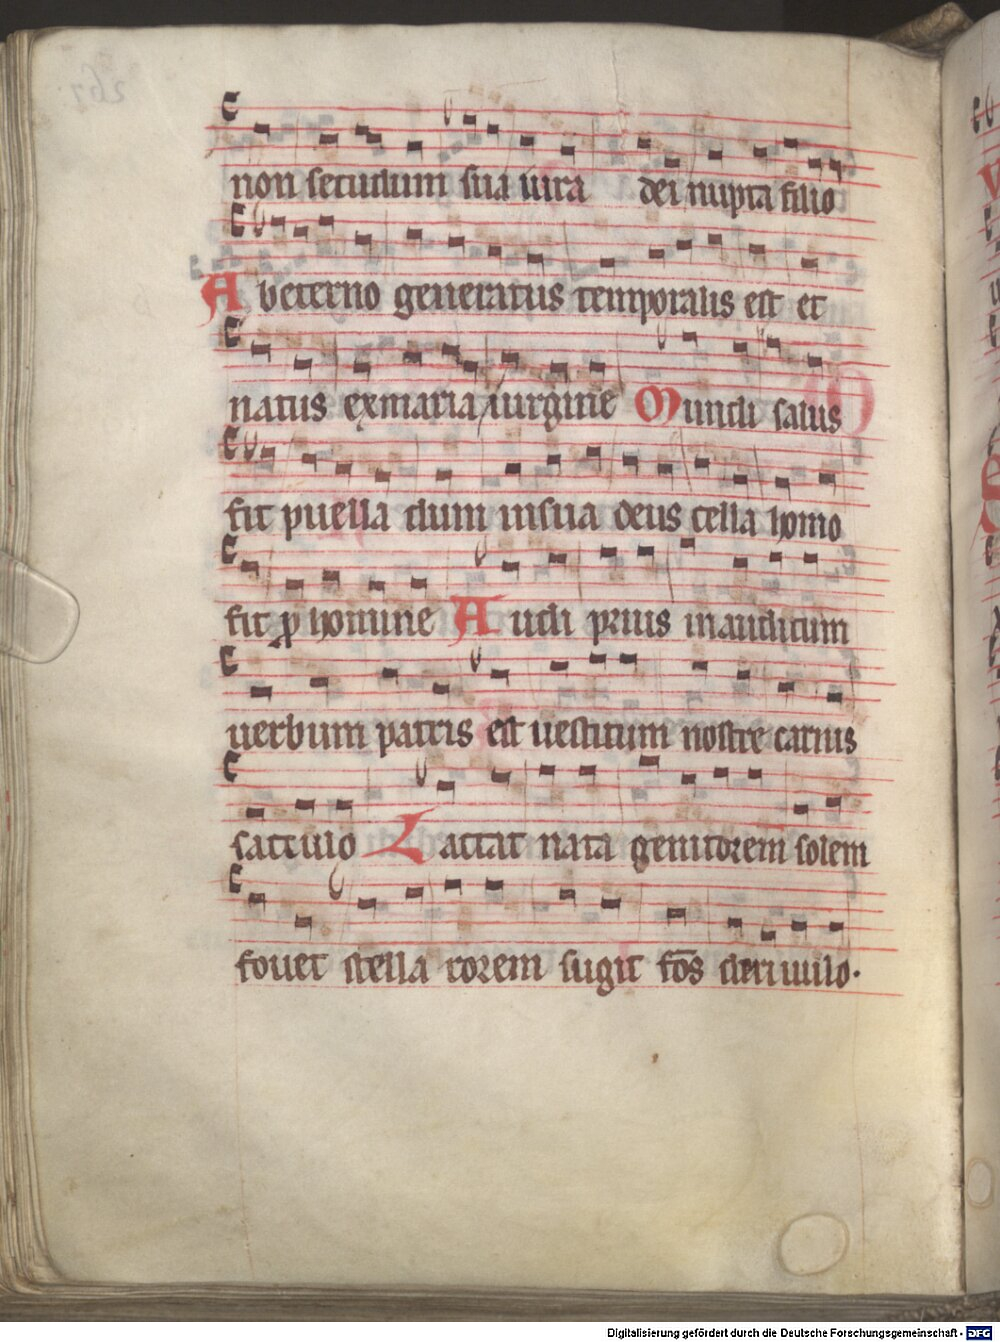 non secudum sua iura dei nupta filio
Ab eterno generatus temporalis est et
natus ex maria uirgine Mundi salus
fit puella dum in sua deus cella homo
fit ꝓ homine Audi prius inauditum
uerbum patris est uestitum nostre carnis
sacculo Lactat nata genitorem solem
fouet stella rorem sugit fōs de riuulo.
Digitalisierung gefördert durch die Deutsche Forschungsgemeinschaft - DFG